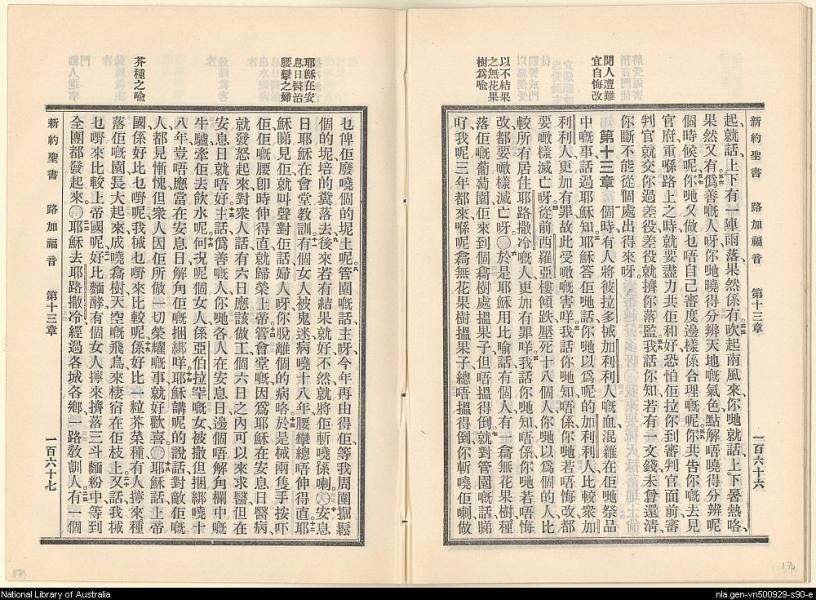 新約聖書 路加福音 第十三章 一百六十六
聞人遭難
宜自悔改
以不結果
之無花果
樹爲喩
起就話上下有一陣雨落果然係有吹起南風來你哋就話上下暑熱咯
果然又有僞善嘅人呀你哋曉得分辨天地嘅氣色點解唔曉得分辨呢
個時候呢你哋又做乜唔自己審度邊樣係合理嘅呢你共告你嘅去見
官府重喺路上之時就要盡力共佢和好恐怕佢拉你到審判官面前審
判官就交你過差役差役就擠你落監我話你知若有一文錢未曾還淸
你斷不能從個處出得來呀
第十三章 個時有人將彼拉多城加利利人嘅血混雜在佢哋祭品
中嘅事話過耶穌知耶穌答佢哋話你哋以爲呢的加利利人比較衆加
利利人更加有罪故此受噉嘅害咩我話你哋知唔係你哋若唔悔改都
要噉樣滅亡呀從前西羅亞樓傾跌壓死十八個人你哋以爲個的人比
較所有居住耶路撒冷嘅人更加有罪咩我話你哋知唔係你哋若唔悔
改都要噉樣滅亡呀○於是耶穌用比喻話有個人有一樖無花果樹種
落佢嘅葡萄園佢來到個樖樹處搵果子但唔搵得到就對管園嘅話睇
吓我呢三年都來喺呢樖無花果樹搵果子總唔搵得倒你斬曉佢喇做
新約聖書 路加福音 第十三章 一百六十七
耶穌在安
息日醫治
腰攣之婦
芥種之喩
乜俾佢廢曉個的坭土呢管園嘅話主呀今年再由得佢等我周圍掘鬆
個的坭培的糞落去後來若有結果就好不然就將佢斬曉係喇○安息
日耶穌在會堂敎訓有個女人被鬼迷病曉十八年腰攣總唔伸得直耶
穌睇見佢就叫聲對佢話婦人呀你脫離個的病咯於是械兩隻手按吓
佢佢嘅腰卽時伸得直就歸榮上帝管會堂嘅因爲耶穌在安息日醫病
就發怒起來對衆人話有六日應該做工個六日之內可以來求醫但在
安息日就唔好主話僞善嘅人你哋各人在安息日邊個唔解角欄中嘅
牛驢牽佢去飲水呢何况呢個女人係亞伯拉罕嘅女被撒但捆綁曉十
八年豈唔應當在安息日解角佢嘅捆綁咩耶穌講呢的說話對敵佢嘅
人都見慚愧但衆人因佢所做一切榮耀嘅事就好歡喜○耶穌話上帝
國係好比乜嘢呢我械乜嘢來比較呢係好比一粒芥菜種有人擰來種
落佢嘅園長大起來成曉樖樹天空嘅飛鳥來棲宿在佢枝上又話我械
乜嘢來比較上帝國呢好比麵酵有個女人擰來擠落三斗麵粉中等到
全團都發起來○耶穌去耶路撒冷經過各城各鄉一路敎訓人有一個
National Library of Australia
nla.gen-vn500929-s90-e